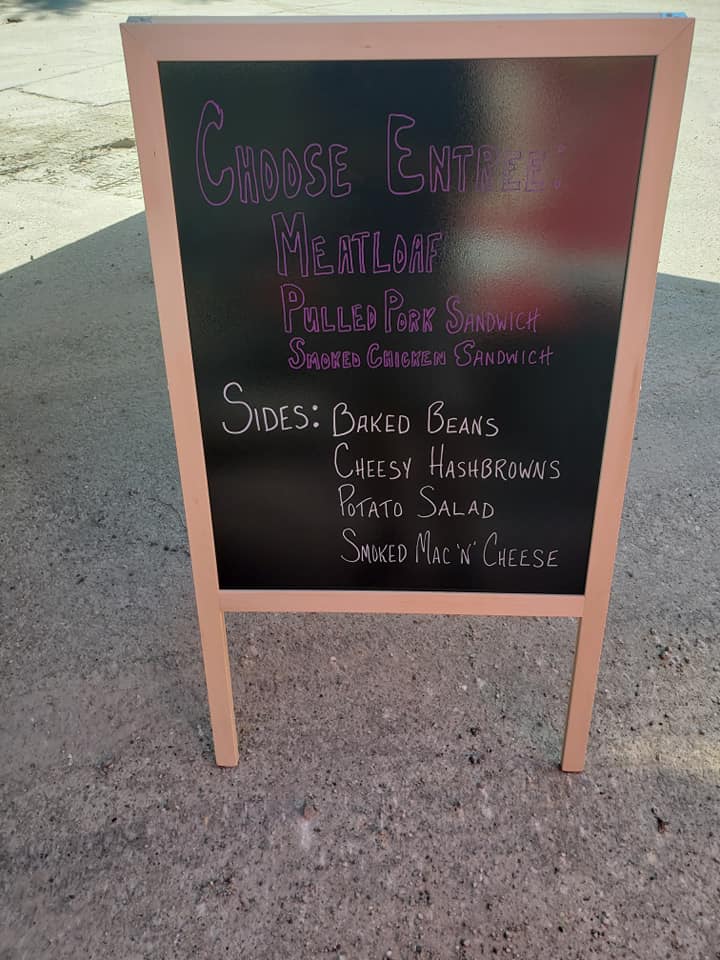 CHOOSE ENTREE:
MEATLOAF
PULLED PORK SANDWICH
SMOKED CHICKEN SANDWICH
SIDES: BAKED BEANS
CHEESY HASHBROWNS
POTATO SALAD
SMOKED MAC 'N' CHEESE